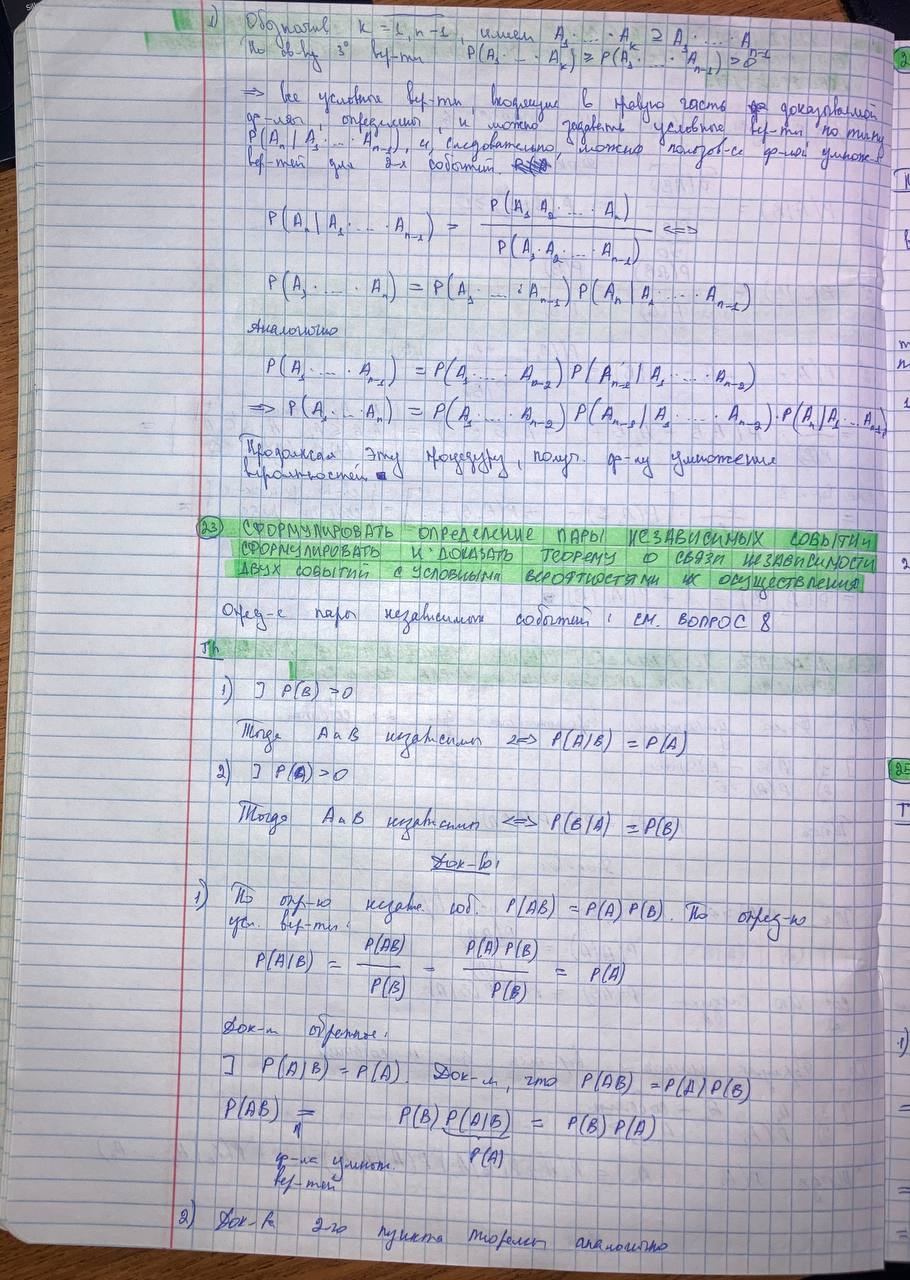 1) Обозначив k = 1, n-1, имеем A₁·...·Aₖ ⊇ A₁·...·Aₙ₋₁
По св-ву 3° вер-ти P(A₁·...·Aₖ) ≥ P(A₁·...·Aₙ₋₁) > 0
⇒ все условные вер-ти, входящие в правую часть доказываемой
ф-лы, определены, и можно задавать условные вер-ти по типу
P(Aₙ | A₁·...·Aₙ₋₁), и, следовательно, можно пользов-ся ф-лой умнож-
вер-тей для 2-х событий.
P(Aₙ | A₁·...·Aₙ₋₁) = P(A₁A₂·...·Aₙ) / P(A₁·A₂·...·Aₙ₋₁) ⇔
P(A₁·...·Aₙ) = P(A₁·...·Aₙ₋₁) P(Aₙ | A₁·...·Aₙ₋₁)
Аналогично
P(A₁·...·Aₙ₋₁) = P(A₁·...·Aₙ₋₂) P(Aₙ₋₁ | A₁·...·Aₙ₋₂)
⇒ P(A₁·...·Aₙ) = P(A₁·...·Aₙ₋₂) P(Aₙ₋₁ | A₁·...·Aₙ₋₂)·P(Aₙ | A₁·...·Aₙ₋₁)
Продолжая эту процедуру, получ. ф-лу умножения
вероятностей ■
23 СФОРМУЛИРОВАТЬ ОПРЕДЕЛЕНИЕ ПАРЫ НЕЗАВИСИМЫХ СОБЫТИЙ
СФОРМУЛИРОВАТЬ И ДОКАЗАТЬ ТЕОРЕМУ О СВЯЗИ НЕЗАВИСИМОСТИ
ДВУХ СОБЫТИЙ С УСЛОВНЫМИ ВЕРОЯТНОСТЯМИ ИХ ОСУЩЕСТВЛЕНИЯ
Опред-е пары независимых событий: СМ. ВОПРОС 8
Th
1) ] P(B) > 0
Тогда A и B независимы ⇔ P(A|B) = P(A)
2) ] P(A) > 0
Тогда A и B независимы ⇔ P(B|A) = P(B)
Док-во:
1) По опр-ю незав. соб. P(AB) = P(A) P(B). По опред-ю
усл. вер-ти:
P(A|B) = P(AB) / P(B) = P(A) P(B) / P(B) = P(A)
Док-м обратное:
] P(A|B) = P(A). Док-м, что P(AB) = P(A) P(B)
P(AB) = P(B) P(A|B) = P(B) P(A)
P(A)
ф-ла умнож.
вер-тей
2) Док-во 2-го пункта теоремы аналогично